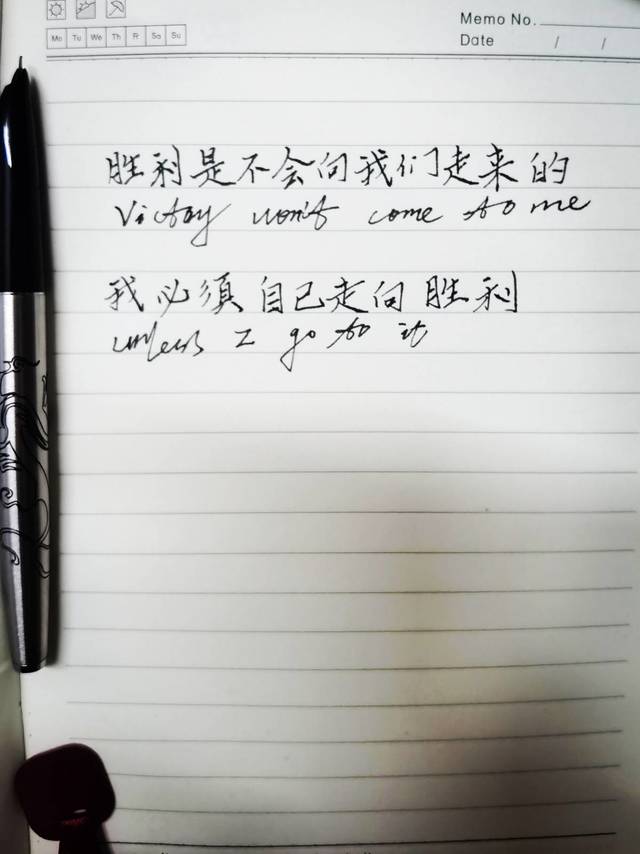 Memo No.
Mo Tu We Th Fr Sa Su
Date / /
胜利是不会向我们走来的
Victory won't come to me
我必須自己走向胜利
unless I go to it